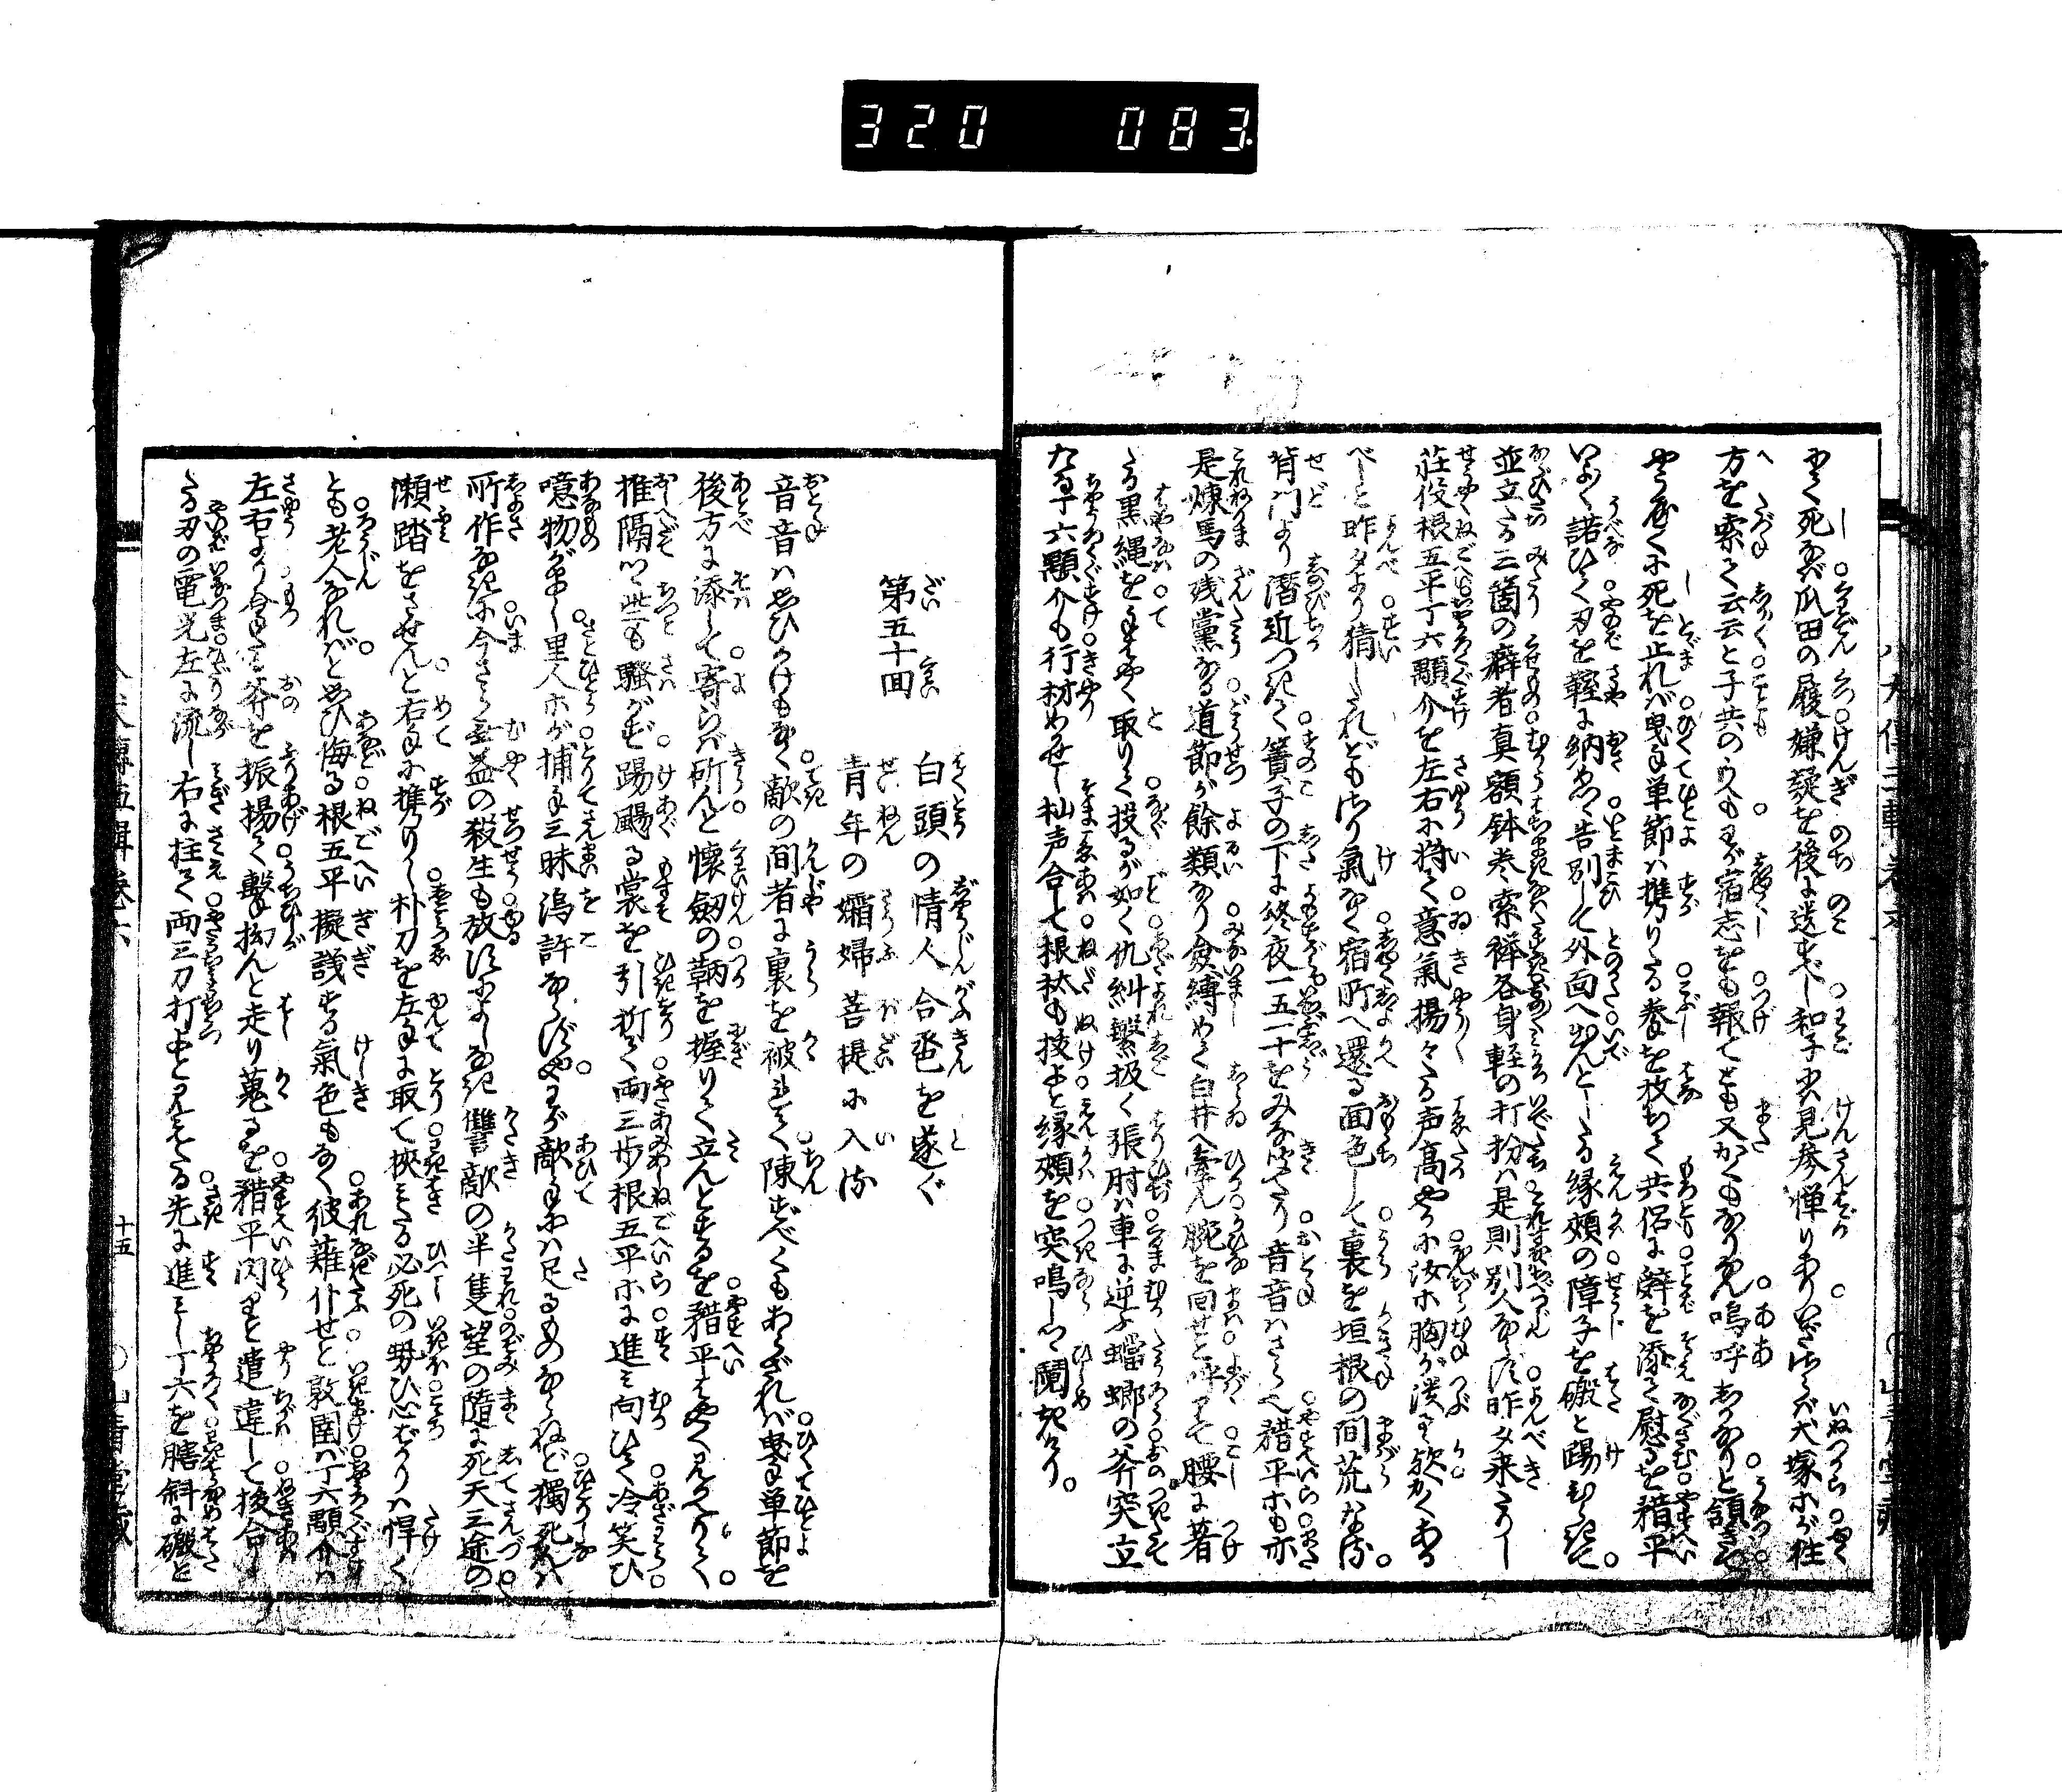 320 083
みて死なば瓜田の履嫌疑を後に送すべし和子共見参憚りありいざさらば犬塚ホが往
方を索て云云と子共のうへもわが宿志をも報てとも又かくもありなん嗚呼しかなりと頷きて
やうやくに死を止れば曳手単節は携りたる拳を放ちて共侶に辞を添て慰るを䅣平
いよく諾ひて刃を鞘に納めつゝ告別して外面へ出んとしたる縁頬の障子を礑と踢ひらきて
並立たる三箇の癖者真額鉢巻索襷各身軽の打扮は是則別人ならず昨夕来たりし
荘役根五平丁六顒介を左右に将て意氣揚々たる声高やかに汝ホ胸が潰れ歟かくある
べしと昨夕より猜したれどもさり氣なく宿所へ還る面色して裏を垣根の間荒なる
背門より潜近つきて簀子の下に終夜一五一十をみな听たり音音はさら也䅣平ホも亦
是煉馬の残黨なる道節が餘類なり僉縛めて白井へ牽ん腕を回せと呼はりて腰に著
たる黒縄を手はやく取りて投るが如く仇糾繋扱く張肘は車に逆ふ蟷螂の斧突立
たる丁六顒介も行材めかせし杣声合して根株も抜よと縁頬を突鳴しつゝ鬩きけり。
第五十回
白頭の情人合卺を遂ぐ
青年の孀婦菩提に入る
音音は思ひかけもなく敵の間者に裏を被れて陳ずべくもあらざれば曳手単節を
後方に添して寄らば斫んと懐劔の鞆を握りて立んとするを䅣平はやく見かへりて
推隔つゝ些も騒がず踢颺る裳を引折て両三歩根五平ホに進み向ひて冷笑ひ
噫物がましし里人ホが捕手三昧嗚許ならずやわが敵手には足るものならねど獨死なんは
所作なきに今さら無益の殺生も放ほによしなき讐敵の半隻望の隨に死天三途の
瀬踏をさせんと右手に携りし朴刀を左手に取て挾みたる必死の勢ひ心ばかりは悍く
とも老人なればと思ひ侮る根五平擬議する氣色もなく彼薙仆せと敦圉ば丁六顒介は
左右より合したる斧を振揚て撃拗んと走り蒐るを䅣平閃りと遣違して抜合し
たる刃の電光左に流し右に拄て両三刀打よと見えたる先に進みし丁六を膳斜に礑と
八犬傳五輯巻六
十五
山青堂藏